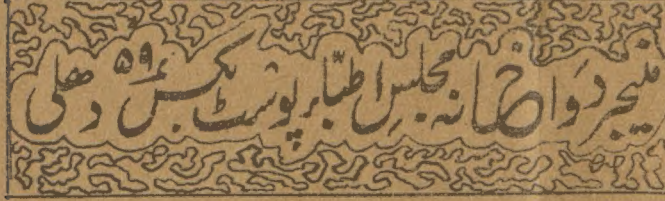 منیجر دواخانہ مجلس اطبّاء پوسٹ بکس نمبر ۵۹ دھلی